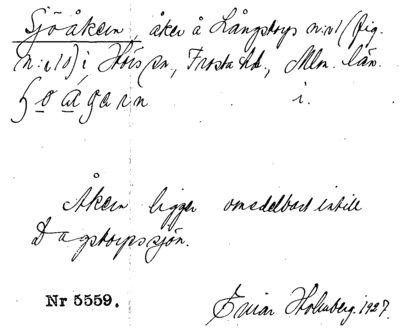 Sjöåkern, åker å Långstorps n:o 1 (fig.
n:o 10) i Hörs sn., Frosta hd., Mlm. län.
i.
Åkern ligger omedelbart intill
Dagstorpssjön.
Nr 5559.   Einar Holmberg. 1927.